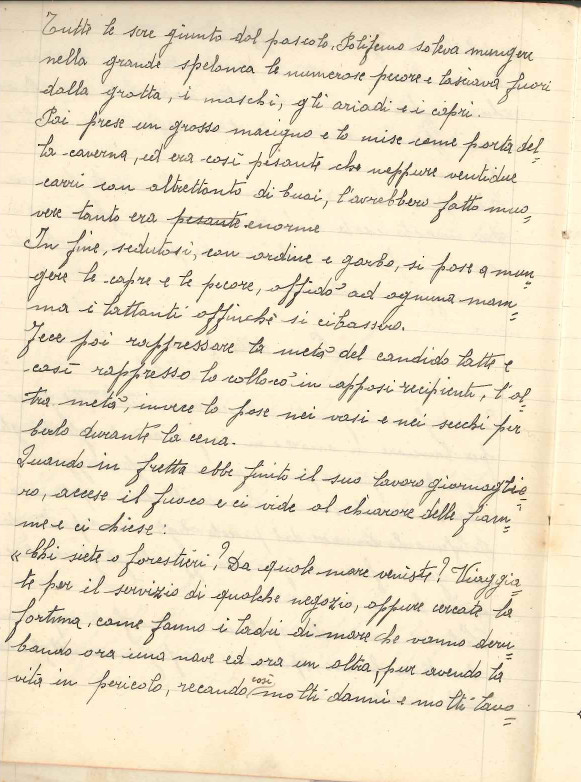 Tutte le sere giunto dal pascolo, Polifemo soleva mungere
nella grande spelonca le numerose pecore e lasciava fuori
dalla grotta, i maschi, gli ariadi e i capri.
Poi prese un grosso macigno e lo mise come porta del=
la caverna, ed era così pesante che neppure ventidue
carri con altrettanto di buoi, l'avrebbero fatto muo=
vere tanto era pesante enorme
In fine, sedutosi, con ordine e garbo, si pose a mun=
gere le capre e le pecore, affidò ad ognuna mam=
ma i lattanti affinchè si cibassero.
Fece poi rappressare la metà del candido latte e
così rappresso lo collocò in apposi recipienti, l'al=
tra metà, invece lo pose nei vasi e nei secchi per
berlo durante la cena.
Quando in fretta ebbe finito il suo lavoro giornaglie=
ro, accese il fuoco e ci vide al chiarore delle fiam=
me e ci chiese:
"Chi siete o forestieri? Da quale mare veniste? Viaggia=
te per il servizio di qualche negozio, oppure cercate la
fortuna, come fanno i ladri di mare che vanno deru=
bando ora una nave ed ora un altra, pur avendo la
vita in pericolo, recando così molti danni e molti lavo=